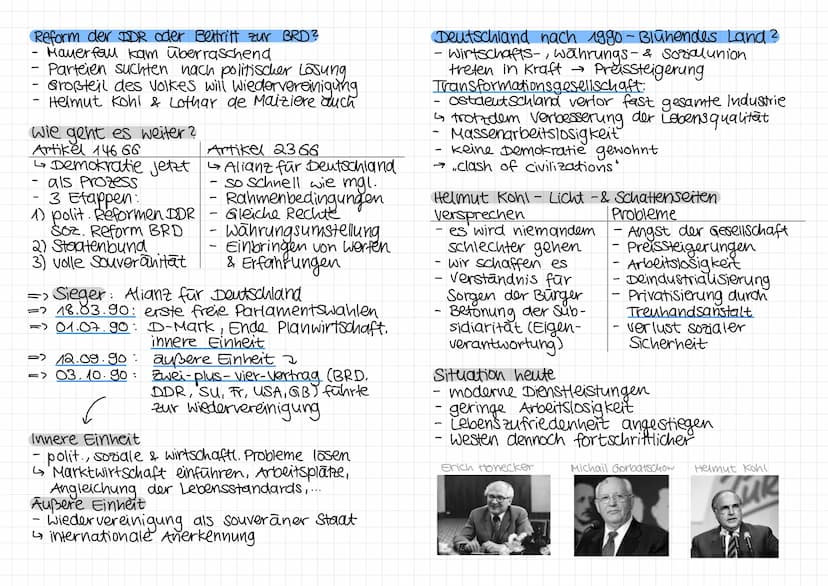 Reform der DDR oder Beitritt zur BRD?
- Mauerfall kam überraschend
- Parteien suchten nach politischer Lösung
- Großteil des Volkes will Wiedervereinigung
- Helmut Kohl & Lothar de Maiziere auch
Wie geht es weiter?
Artikel 146 GG
↳ Demokratie jetzt
- als Prozess
- 3 Etappen:
1) polit. Reformen DDR
soz. Reform BRD
2) Staatenbund
3) volle Souveränität
Artikel 23 GG
↳ Alianz für Deutschland
- so schnell wie mgl.
- Rahmenbedingungen
- Gleiche Rechte
- Währungsumstellung
- Einbringen von Werten
& Erfahrungen
=> Sieger: Alianz für Deutschland
=> 18.03.90: erste freie Parlamentswahlen
=> 01.07.90: D-Mark, Ende Planwirtschaft,
innere Einheit
=> 12.09.90: äußere Einheit ↴
=> 03.10.90: Zwei-plus-Vier-Vertrag (BRD,
DDR, SU, Fr, USA, GB) führte
zur Wiedervereinigung
Innere Einheit
- polit., soziale & wirtschaftl. Probleme lösen
↳ Marktwirtschaft einführen, Arbeitsplätze,
Angleichung der Lebensstandards,...
Äußere Einheit
- Wiedervereinigung als souveräner Staat
↳ internationale Anerkennung
Deutschland nach 1990 - Blühendes Land?
- Wirtschafts-, Währungs- & Sozialunion
treten in Kraft → Preissteigerung
Transformationsgesellschaft:
- Ostdeutschland verlor fast gesamte Industrie
↳ trotzdem Verbesserung der Lebensqualität
- Massenarbeitslosigkeit
- keine Demokratie gewohnt
→ „clash of civilizations"
Helmut Kohl - Licht- & Schattenseiten
Versprechen
- es wird niemandem
schlechter gehen
- wir schaffen es
- Verständnis für
Sorgen der Bürger
- Betonung der Sub-
sidiarität (Eigen-
verantwortung)
Probleme
- Angst der Gesellschaft
- Preissteigerungen
- Arbeitslosigkeit
- Deindustrialisierung
- Privatisierung durch
Treuhandsanstalt
- Verlust sozialer
Sicherheit
Situation heute
- moderne Dienstleistungen
- geringe Arbeitslosigkeit
- Lebenszufriedenheit angestiegen
- Westen dennoch fortschrittlicher
Erich Honecker
Michail Gorbatschow
Helmut Kohl